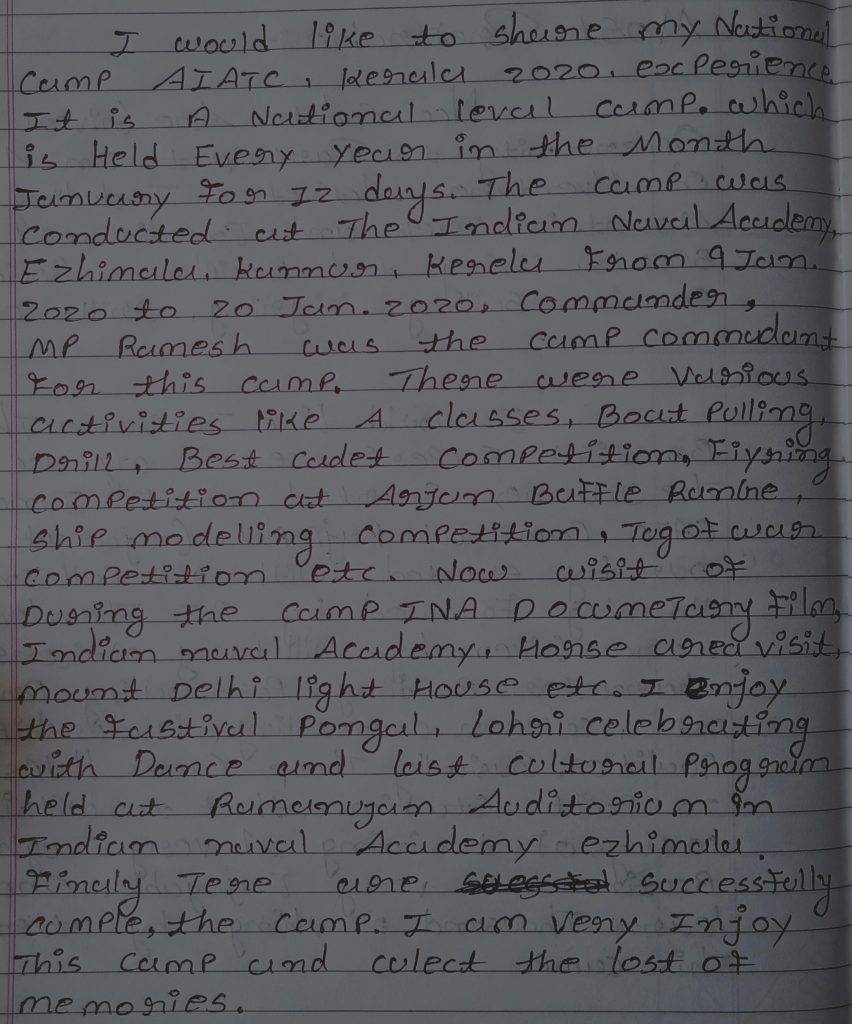 I would like to share my National
Camp AIATC, Kerala 2020. experience
It is A National level camp. which
is Held Every year in the Month
January For 12 days. The camp was
conducted at The Indian Naval Academy,
Ezhimala, Kannur, Kerela From 9 Jan.
2020 to 20 Jan. 2020. Commander,
MP Ramesh was the camp commadant
For this camp. There were Various
activities like A classes, Boat Pulling,
Drill, Best cadet competition, Fiyring
competition at Arjan Baffle Ranine,
ship modelling competition, Tug of war
competition etc. Now wisit of
During the camp INA Documetary Film,
Indian naval Academy. Horse area visit,
mount Delhi light House etc. I enjoy
the Fastival Pongal, lohri celebrating
with Dance and last cultural Proggram
held at Ramanujan Auditorium in
Indian naval Academy ezhimala.
Finaly Tere are successfully
comple, the camp. I am very Injoy
This camp and colect the lost of
memories.